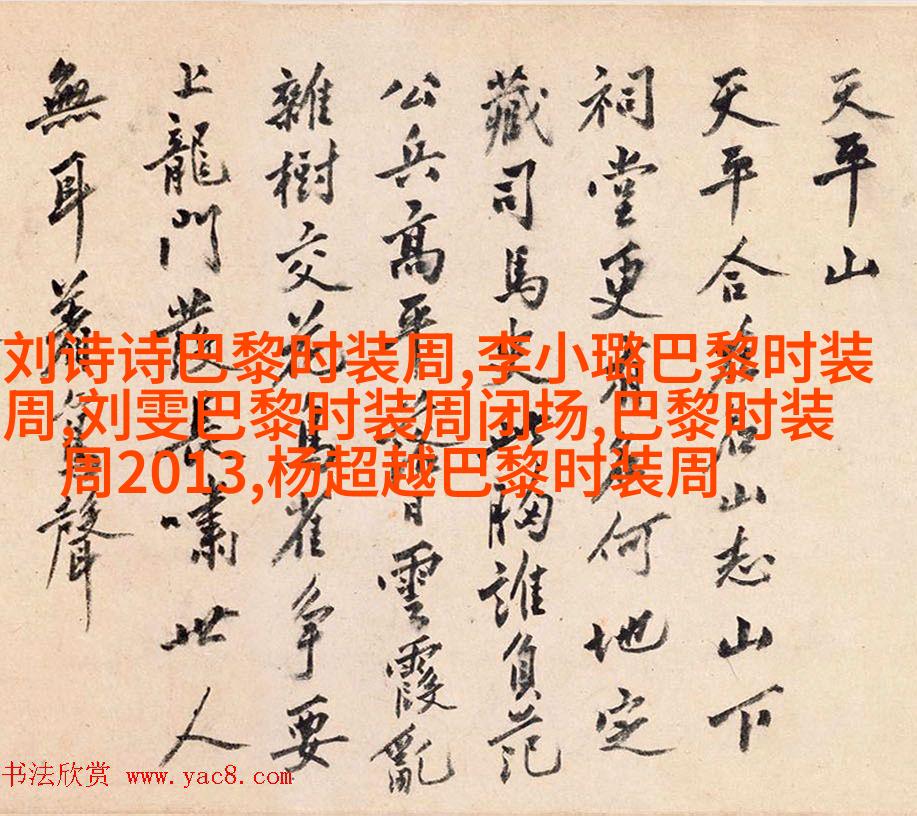 天平山
天平合名山志山下
祠堂更何地定
藏司馬史此胸誰負范
公兵高平雲霞亂
雜樹交花鳥雀爭要
上龍門發長嘯世人
無耳聲
刘诗诗巴黎时装周,李小璐巴黎时装
周,刘雯巴黎时装周闭场,巴黎时装
周2013,杨超越巴黎时装周
书法欣赏 www.yac8.com